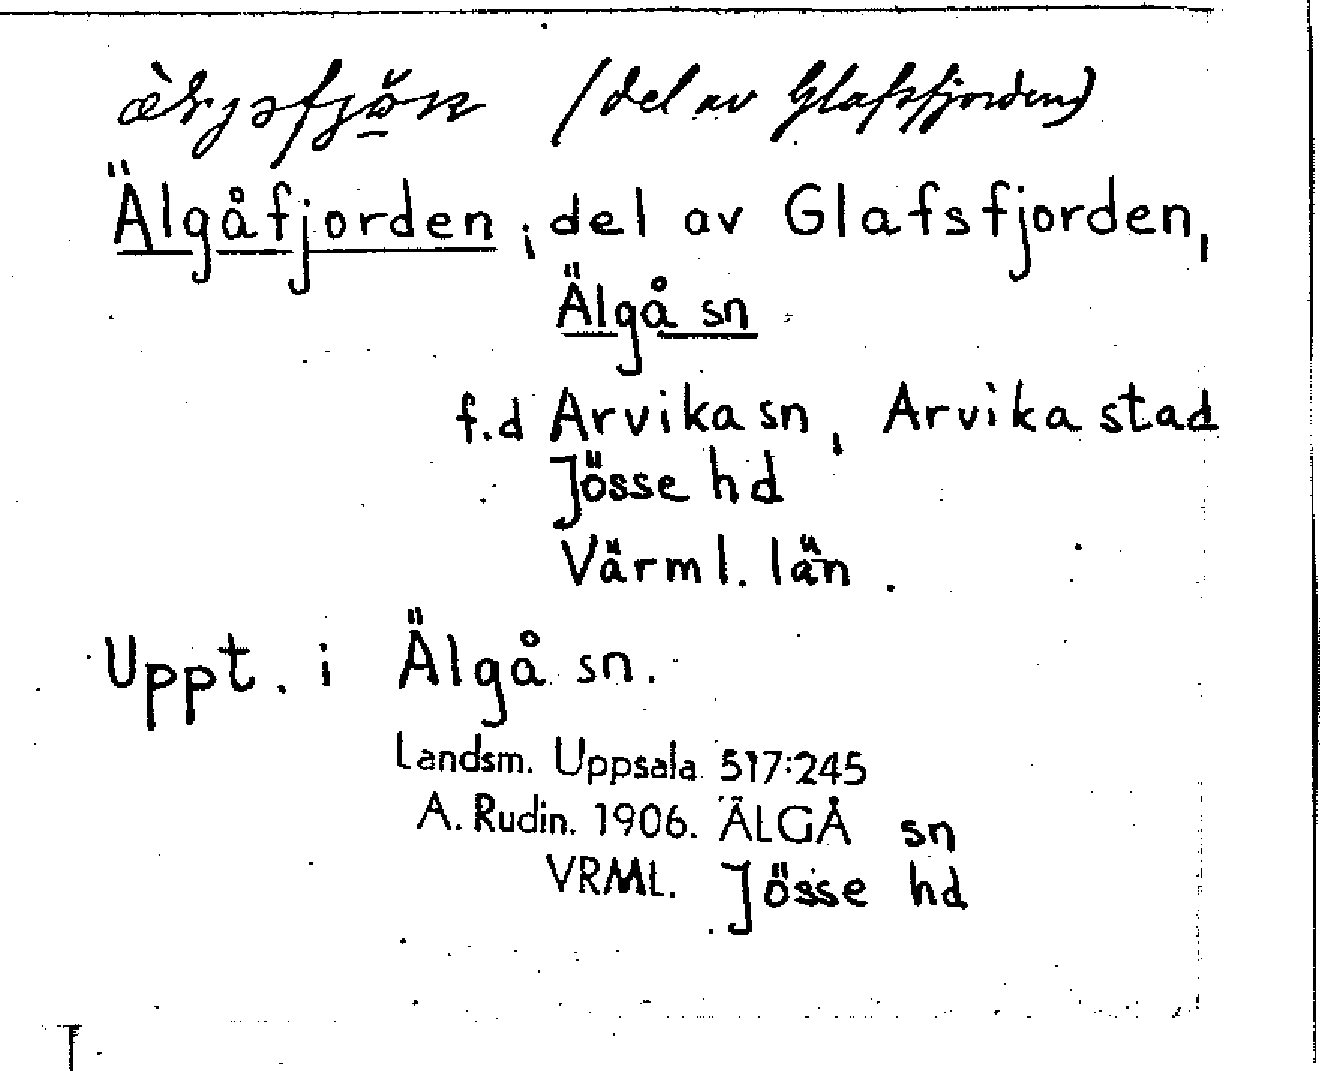 (del av Glafsfjorden)
Älgåfjorden, del av Glafsfjorden,
Älgå sn
f.d Arvika sn, Arvika stad
Jösse hd
Värml. län.
Uppt. i Älgå sn.
Landsm. Uppsala 517:245
A. Rudin. 1906. ÄLGÅ sn
VRML. Jösse hd